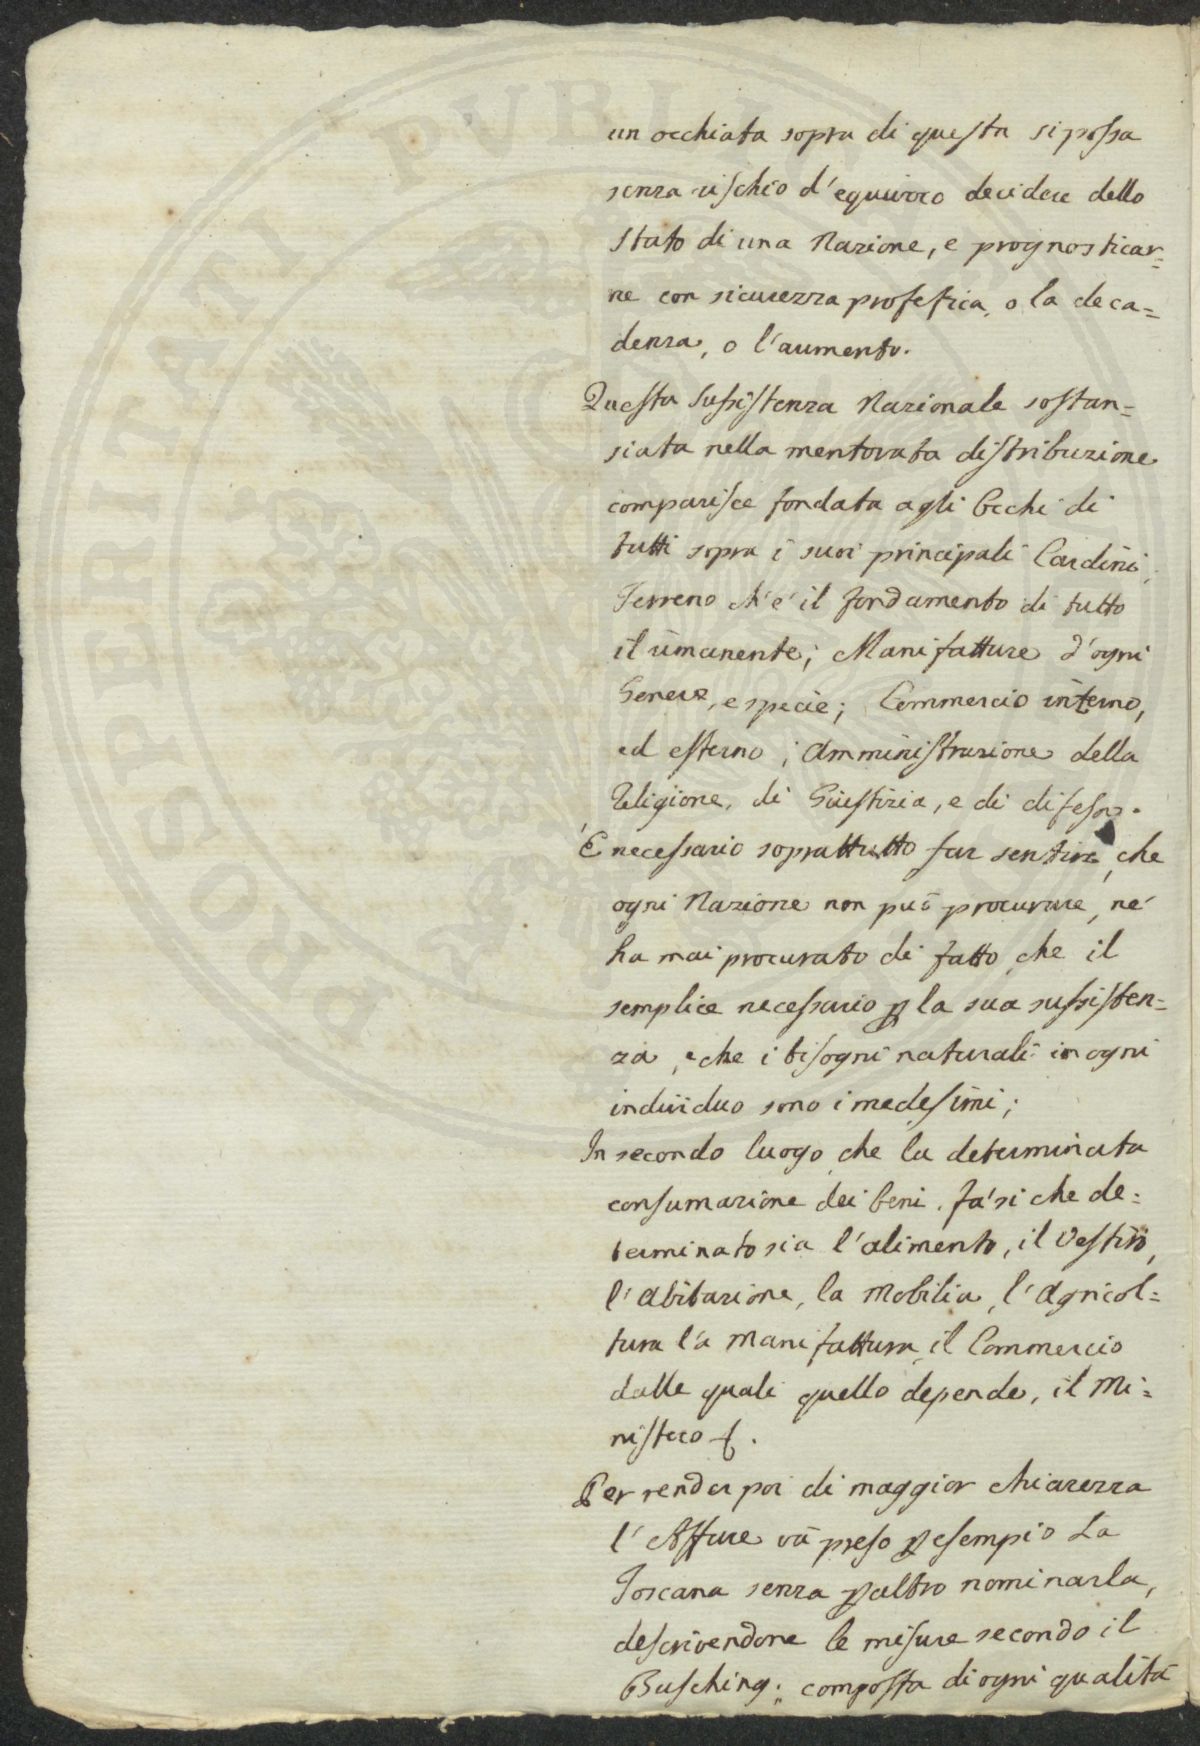 un occhiata sopra di questa si possa
senza rischio d'equivoco decidere dello
stato di una Nazione, e prognosticar=
ne con sicurezza profetica, o la deca=
denza, o l'aumento.
Questa sussistenza Nazionale sostan=
ziata nella mentovata distribuzione
comparisce fondata agli Occhi di
tutti sopra i suoi principali Cardini,
Terreno ch'è il fondamento di tutto
il rimanente; Manifatture d'ogni
Genere, e specie; Commercio interno,
ed esterno; Amministrazione della
Religione, di Giustizia, e di difesa.
È necessario soprattutto far sentire, che
ogni Nazione non può procurare, nè
ha mai procurato di fatto, che il
semplice necessario p la sua sussisten=
za, e che i bisogni naturali in ogni
individuo sono i medesimi;
In secondo luogo, che la determinata
consumazione dei beni, fà si che de=
terminato sia l'alimento, il Vestito,
l'Abitazione, la Mobilia, l'Agricol=
tura la Manifattura, il Commercio
dalle quali quello depende, il Mi=
nistero
Per render poi di maggior chiarezza
l'Affare và preso p esempio La
Toscana senza p altro nominarla,
descrivendone le misure secondo il
Busching; composta di ogni qualità
PUBLI